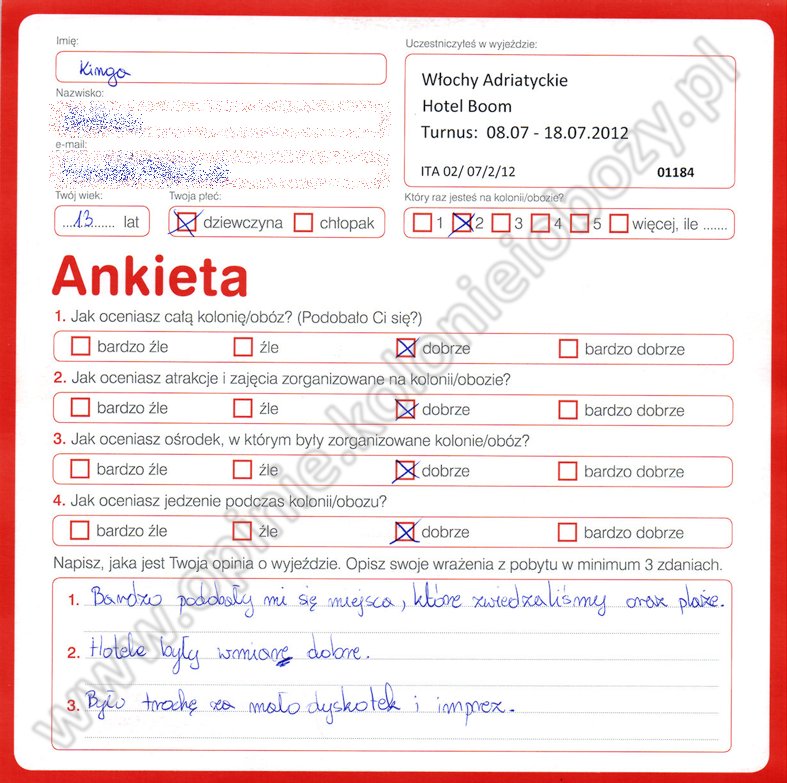 Imię:
Kinga
Uczestniczyłeś w wyjeździe:
Włochy Adriatyckie
Hotel Boom
Turnus: 08.07 - 18.07.2012
ITA 02/ 07/2/12 01184
Nazwisko:
e-mail:
Twój wiek:
....13...... lat
Twoja płeć:
dziewczyna chłopak
Który raz jesteś na kolonii/obozie?
1 2 3 4 5 więcej, ile .......
Ankieta
1. Jak oceniasz całą kolonię/obóz? (Podobało Ci się?)
bardzo źle źle dobrze bardzo dobrze
2. Jak oceniasz atrakcje i zajęcia zorganizowane na kolonii/obozie?
bardzo źle źle dobrze bardzo dobrze
3. Jak oceniasz ośrodek, w którym były zorganizowane kolonie/obóz?
bardzo źle źle dobrze bardzo dobrze
4. Jak oceniasz jedzenie podczas kolonii/obozu?
bardzo źle źle dobrze bardzo dobrze
Napisz, jaka jest Twoja opinia o wyjeździe. Opisz swoje wrażenia z pobytu w minimum 3 zdaniach.
1. Bardzo podobały mi się miejsca, które zwiedzaliśmy oraz plaże.
2. Hotele były wmiarę dobre.
3. Było trochę za mało dyskotek i imprez.
www.opinie.kolonieiobozy.pl